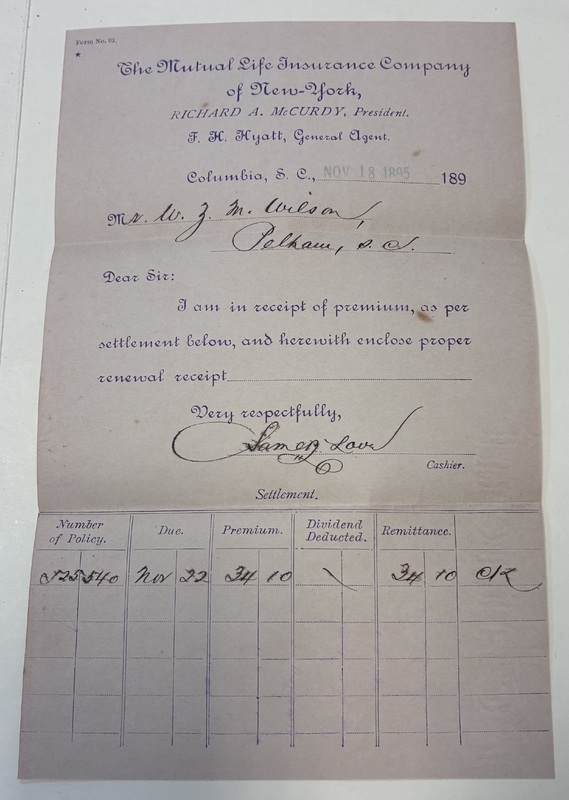 Form No. 92.
The Mutual Life Insurance Company
of New-York,
RICHARD A. McCURDY, President.
F. H. Hyatt, General Agent.
Columbia, S. C., NOV 18 1895 189
Mr. W. Z. M. Wilson,
Pelham, S. C.
Dear Sir:
I am in receipt of premium, as per
settlement below, and herewith enclose proper
renewal receipt
Very respectfully,
Love
Cashier.
Settlement.
Number of Policy. Due. Premium. Dividend Deducted. Remittance.
525540 Nov 22 34 10 \ 34 10 CK